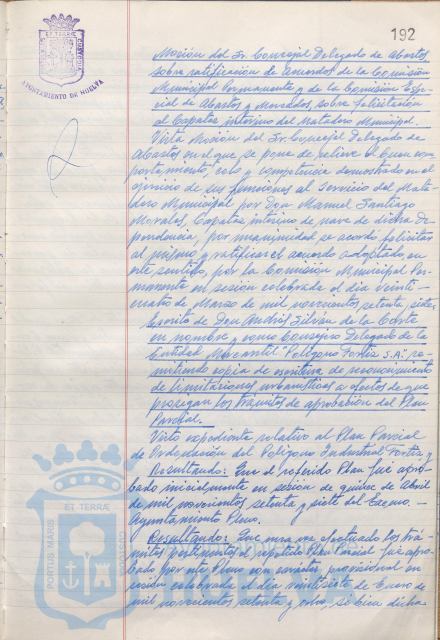 192
PORTUS MARIS ET TERRÆ CUSTODIA
AYUNTAMIENTO DE HUELVA
Moción del Sr. Concejal Delegado de Abastos
sobre ratificación de acuerdos de la Comisión
Municipal Permanente y de la Comisión Espe-
cial de Abastos y Mercados, sobre felicitación
al Capataz interino del Matadero Municipal.
Vista Moción del Sr. Concejal Delegado de
Abastos en el que se pone de relieve el buen com-
portamiento, celo y competencia demostrado en el
ejercicio de sus funciones al Servicio del Mata-
dero Municipal por Don Manuel Santiago
Morales, Capataz interino de nave de dicha De-
pendencia, por unanimidad se acordó felicitar
al mismo y ratificar el acuerdo adoptado, en
este sentido, por la Comisión Municipal Per-
manente en sesión celebrada el día veinti-
cuatro de Marzo de mil novecientos setenta y siete.
Escrito de Don Andrés Silván de la Corte
en nombre y como Consejero Delegado de la
Entidad Mercantil "Polígono Fortiz S.A." re-
mitiendo copia de escritura de reconocimiento
de limitaciones urbanísticas a efectos de que
prosigan los trámites de aprobación del Plan
Parcial.
Visto expediente relativo al Plan Parcial
de Ordenación del Polígono Industrial Fortiz y
Resultando: Que el referido Plan fué apro-
bado inicialmente en sesión de quince de Abril
de mil novecientos setenta y siete del Excmo.
Ayuntamiento Pleno.
Resultando: Que una vez efectuado los trá-
mites pertinentes el repetido Plan Parcial fué apro-
bado por este Pleno con carácter provisional en
sesión celebrada el día veintisiete de Enero de
mil novecientos setenta y ocho, si bien dicha
PORTUS MARIS ET TERRÆ CUSTODIA